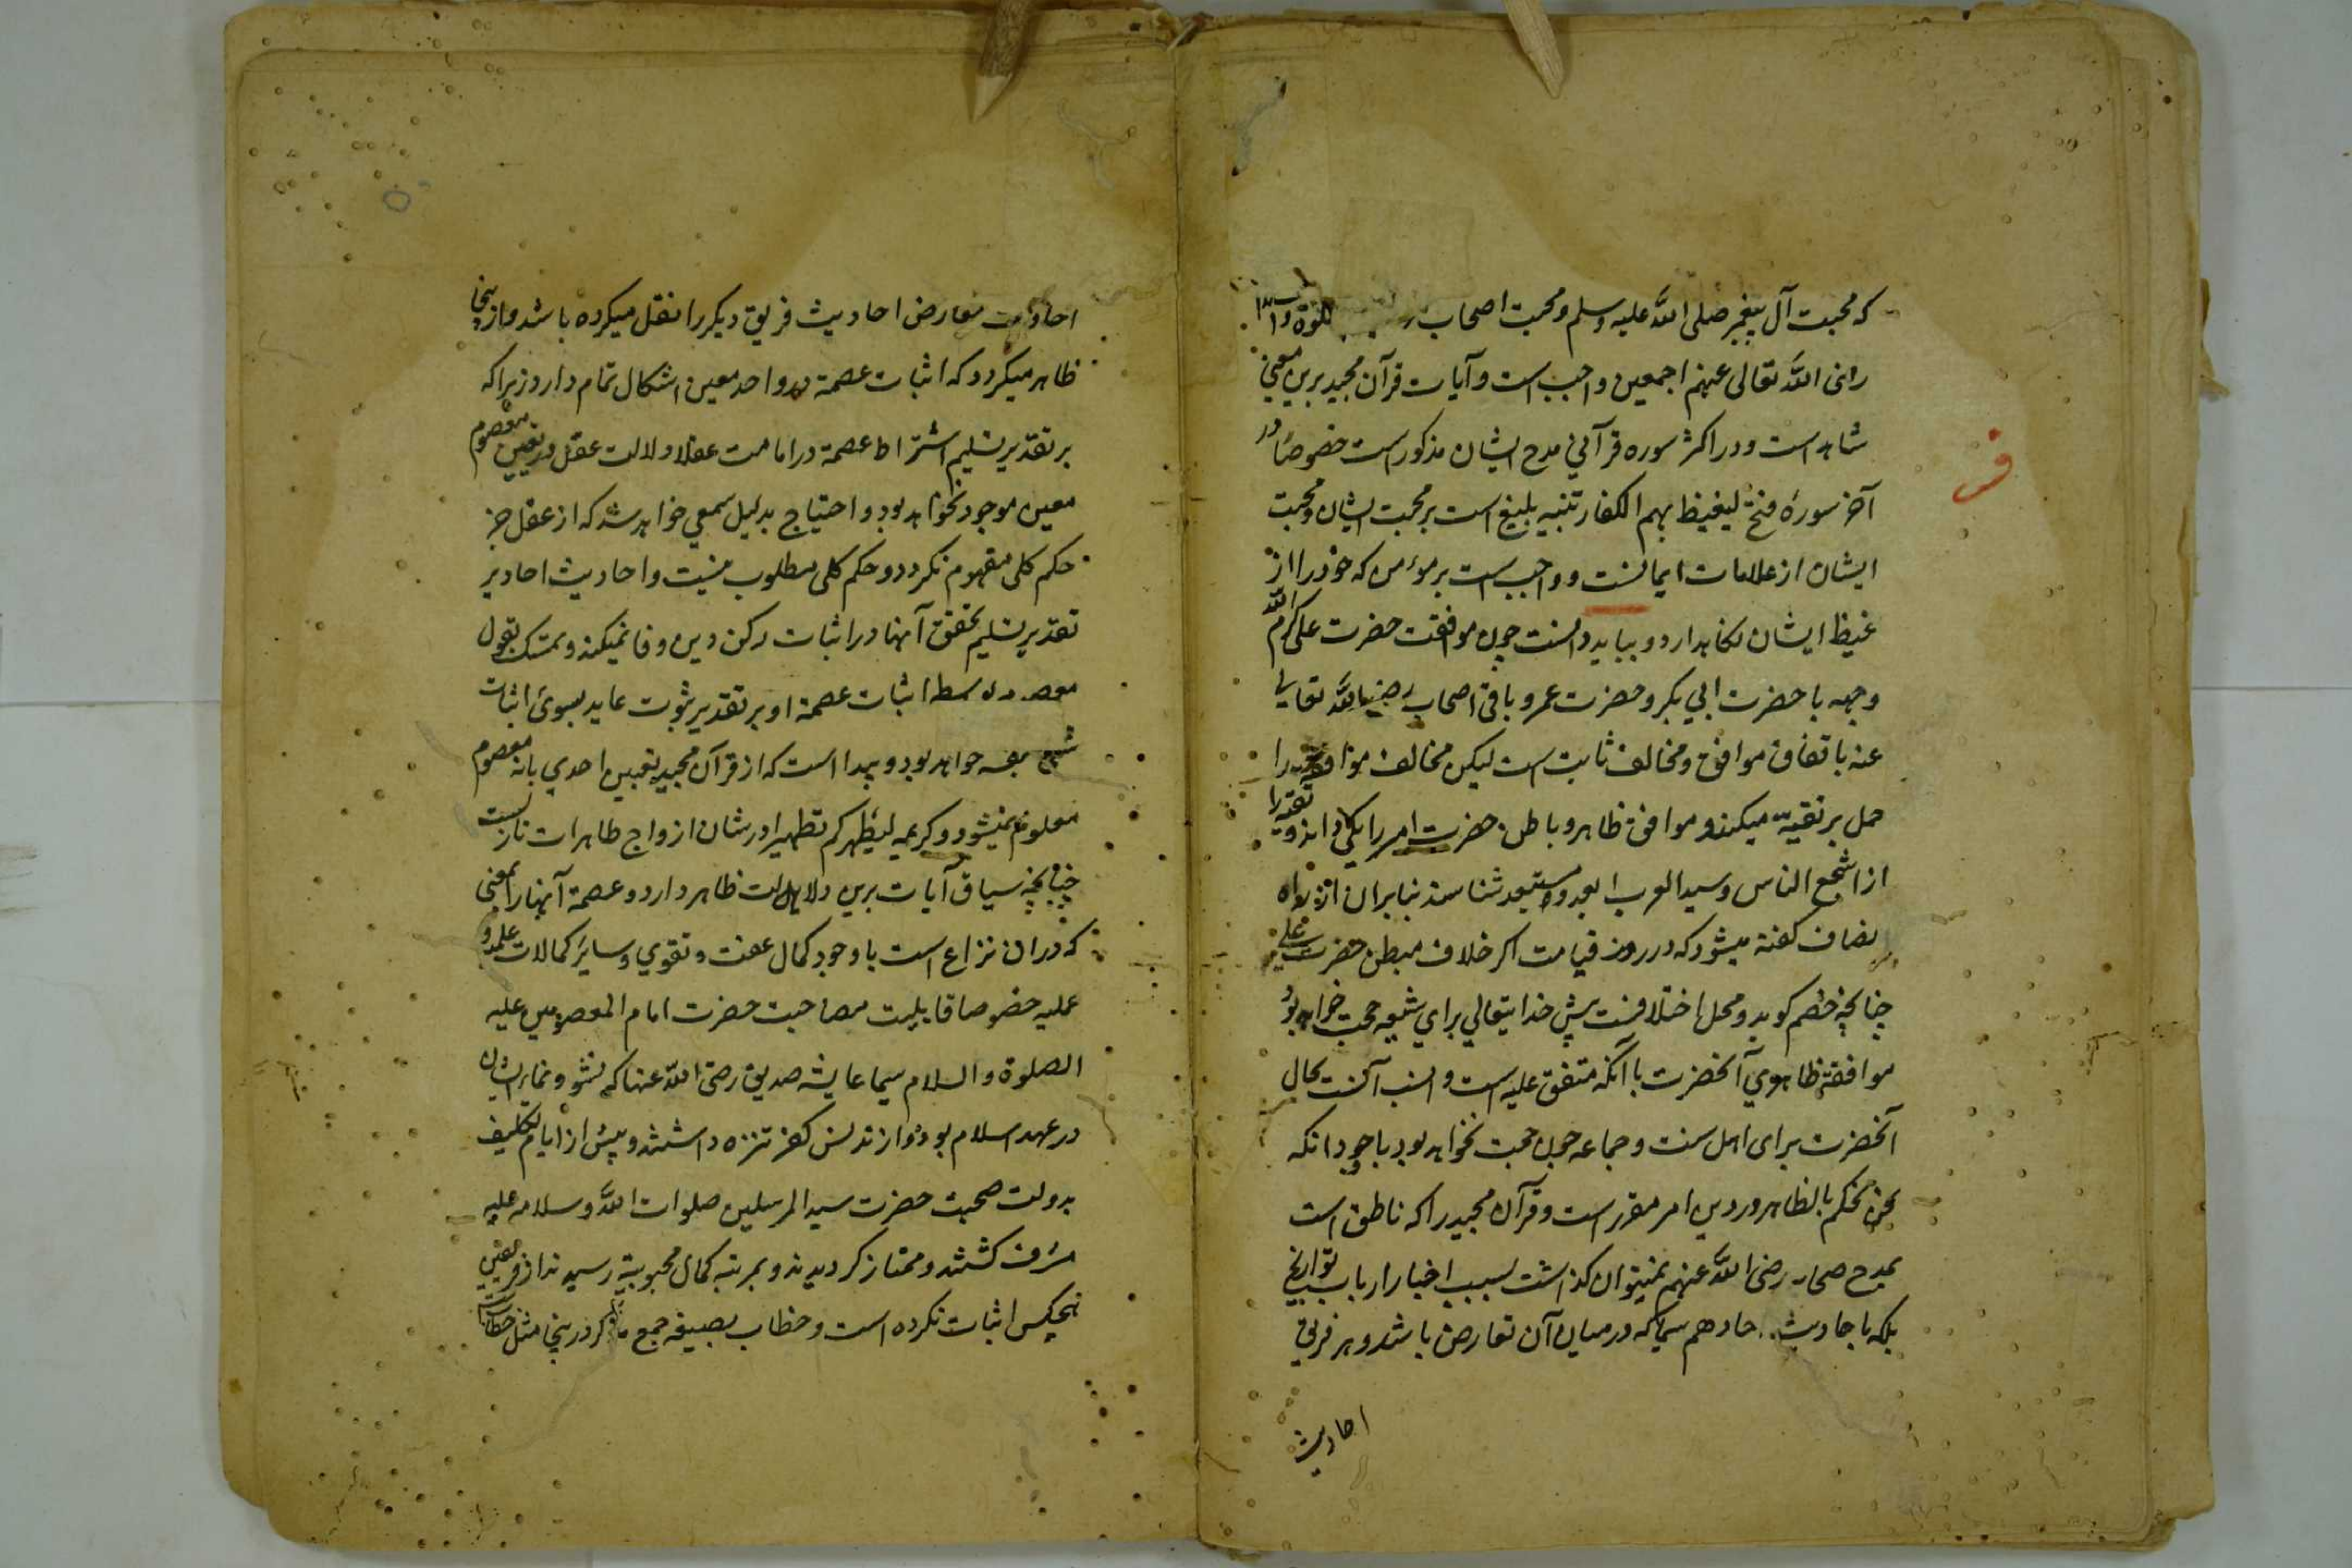 که محبت آل پیغمبر صلی الله علیه وسلم ومحبت اصحاب
رضی الله تعالی عنهم اجمعین واجب است و آیات قرآن مجید برین معنی
شاهد است و در اکثر سوره قرآنی مدح ایشان مذکور است خصوصًا در
آخر سورهٔ فتح لیغیظ بهم الکفار تنبیه بلیغ است بر محبت ایشان و محبت
ایشان از علامات ایمانست و واجب است بر مؤمن که خود را از
غیظ ایشان نکاهدارد و بباید دانست چون موافقت حضرت علی کرم الله
وجهه با حضرت ابی بکر و حضرت عمر و باقی اصحاب رضی الله تعالی
عنه باتفاق موافق و مخالف ثابت است لیکن مخالف موافقت را
حمل بر تقیه میکند و موافق ظاهر و باطن حضرت امیر را یکی داند و تقیه را
از اشجع الناس و سید العرب ابعد و مستبعد شناسند بنابران از راه
انصاف کفته میشود که در روز قیامت اکر خلاف مبطن حضرت علی
چنانچه خصم کوید و محل اختلافست پیش خدایتعالی برای شیعه حجت خواهد بود
موافقة ظاهری آنحضرت با آنکه متفق علیه است و انسب آنست بحال
آنحضرت برای اهل سنت و جماعه چون حجت نخواهد بود با وجود انکه
نحن نحکم بالظاهر و درین امر مقرر است و قرآن مجید را که ناطق است
بمدح صحابه رضی الله عنهم نمیتوان کذاشت بسبب اخبار ارباب تواریخ
بلکه باحادیث احاد هم سیما که درمیان آن تعارض باشد و هر فریق
احادیث
احادیث معارض احادیث فریق دیکر را نقل میکرده باشد و ازینجا
ظاهر میکردد که اثبات عصمة در واحد معین اشکال تمام دارد زیراکه
بر تقدیر تسلیم اشتراط عصمة در امامت عقلا دلالت عقل در تعیین معصوم
معین موجود نخواهد بود و احتیاج بدلیل سمعی خواهد شد که از عقل جز
حکم کلی مفهوم نکردد و حکم کلی مطلوب نیست و احادیث احاد بر
تقدیر تسلیم تحقق آنها در اثبات رکن دین وفا نمیکند و تمسک بقول
اثبات عصمة او بر تقدیر ثبوت عاید بسوی اثبات
خواهد بود و پیدا است که از قرآن مجید تعیین احدی بانه معصوم
معلوم نمیشود و کریمه لیطهرکم تطهیرا در شان ازواج طاهرات نازلست
چنانچه سیاق آیات برین دلالت ظاهر دارد و عصمة آنها را بمعنی
که دران نزاع است باوجود کمال عفت و تقوی و سایر کمالات علمیه و
عملیه خصوصا قابلیت مصاحبت حضرت امام المعصومین علیه
الصلوة والسلام سیما عایشه صدیقه رضی الله عنها که نشو و نمای ایشان
در عهد اسلام بود و از تدنس کفر تنزه داشتند و پیش از ایام تکلیف
بدولت صحبت حضرت سید المرسلین صلوات الله و سلامه علیه
مشرف کشتند و ممتاز کردیدند و بمرتبه کمال محبوبیة رسیدند از فریقین
هیچکس اثبات نکرده است و خطاب بصیغه جمع مذکر درینجا مثل خطاب